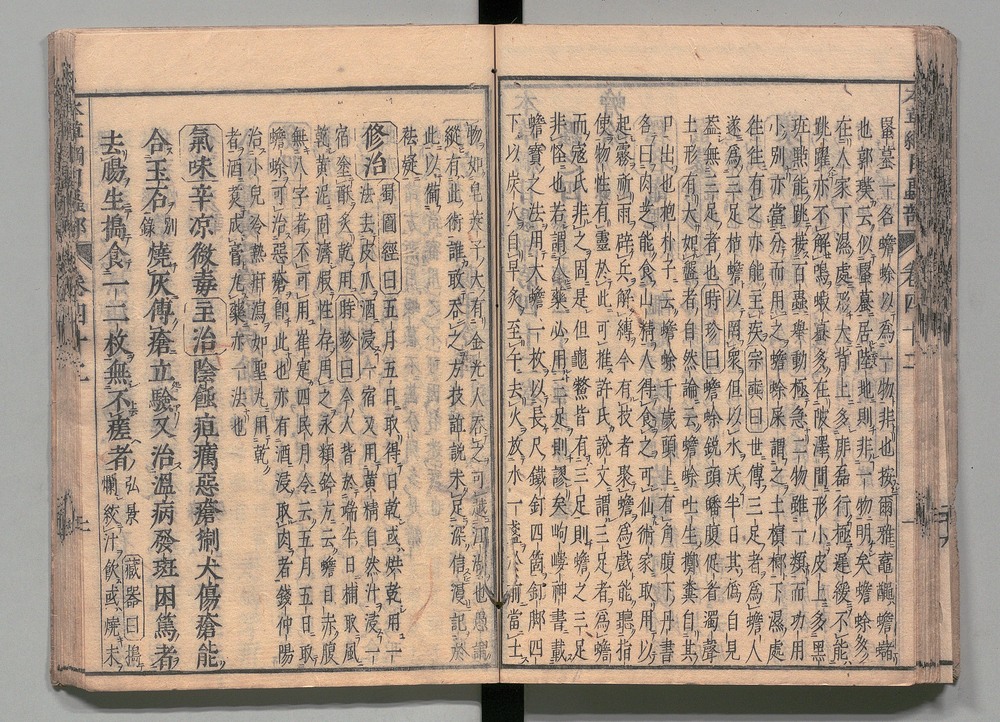 蟇墓一名蟾蜍以為一物非也按爾雅鼁𪓰蟾蠩
也郭璞云似蝦蟇居陸地則非一物明矣蟾蜍多
在人家下濕處形大背上多痱磊行極遲緩不能
跳躍亦不解鳴蝦蟇多在陂澤間形小皮上多黑
班點能跳接百蟲舉動極急二物雖一類而功用
小別亦當分而用之蟾蜍屎謂之土檳榔下濕處
往往有之亦能主疾宗奭曰世傳三足者為蟾人
遂為三足枯蟾以罔衆但以水沃半日其偽自見
蓋無三足者也時珍曰蟾蜍鋭頭皤腹促眉濁聲
土形有大如盤者自然論云蟾蜍吐生擲糞自其
口出也抱朴子云蟾蜍千歲頭上有角腹下丹書
名曰肉芝能食山精人得食之可仙術家取用以
起霧祈雨辟兵解縛今有技者聚蟾為戲能聽指
使物性有靈於此可推許氏說文謂三足者為蟾
而寇氏非之固是但龜鱉皆有三足則蟾之三足
非怪也若謂入藥必用三足則謬矣峋嶁神書載
蟾寶之法用大蟾一枚以長尺鐵釘四箇釘脚四
下以炭火自早炙至午去火放水一盞於前當吐
物如皂莢子大有金光人吞之可越江湖也愚謂
縱有此術誰敢吞之方技誑說未足深信漫記於
此以備
祛疑
修治 蜀圖經曰五月五日取得日乾或烘乾用一
法去皮爪酒浸一宿又用黃精自然汁浸一
宿塗酥炙乾用時珍曰今人皆於端午日捕取風
乾黃泥固濟煅性存用之永類鈐方云蟾目赤腹
無八字者不可用崔寔四民月令云五月五日取
蟾蜍可治惡瘡即此也亦有酒浸取肉者錢仲陽
治小兒冷熱疳瀉如聖丸用乾
者酒煮成膏丸藥亦一法也
氣味辛凉微毒主治陰蝕疽癘惡瘡猘犬傷瘡能
合玉石別錄燒灰傅瘡立驗又治溫病發斑困篤者
去腸生搗食一二枚無不瘥者弘景藏器曰搗
爛絞汁飲或燒末